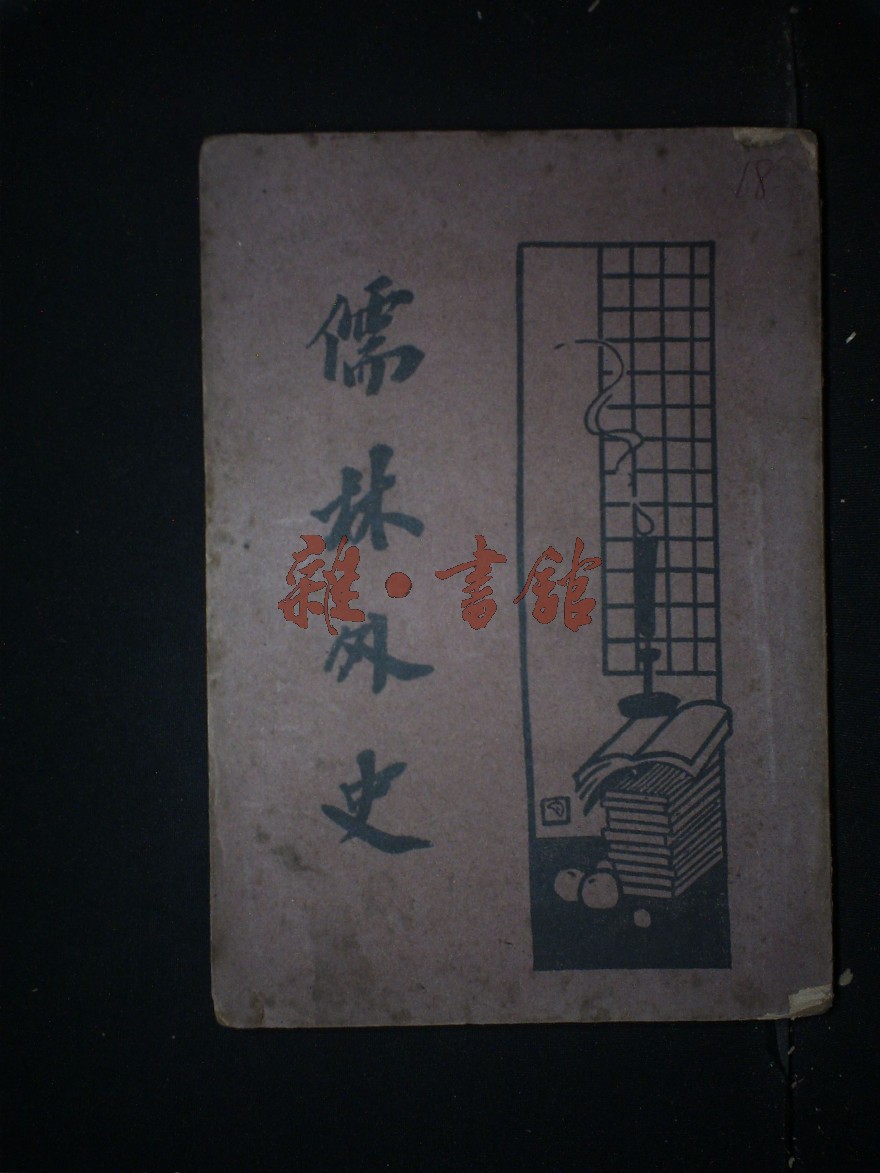 儒林外史
雜·書館
18